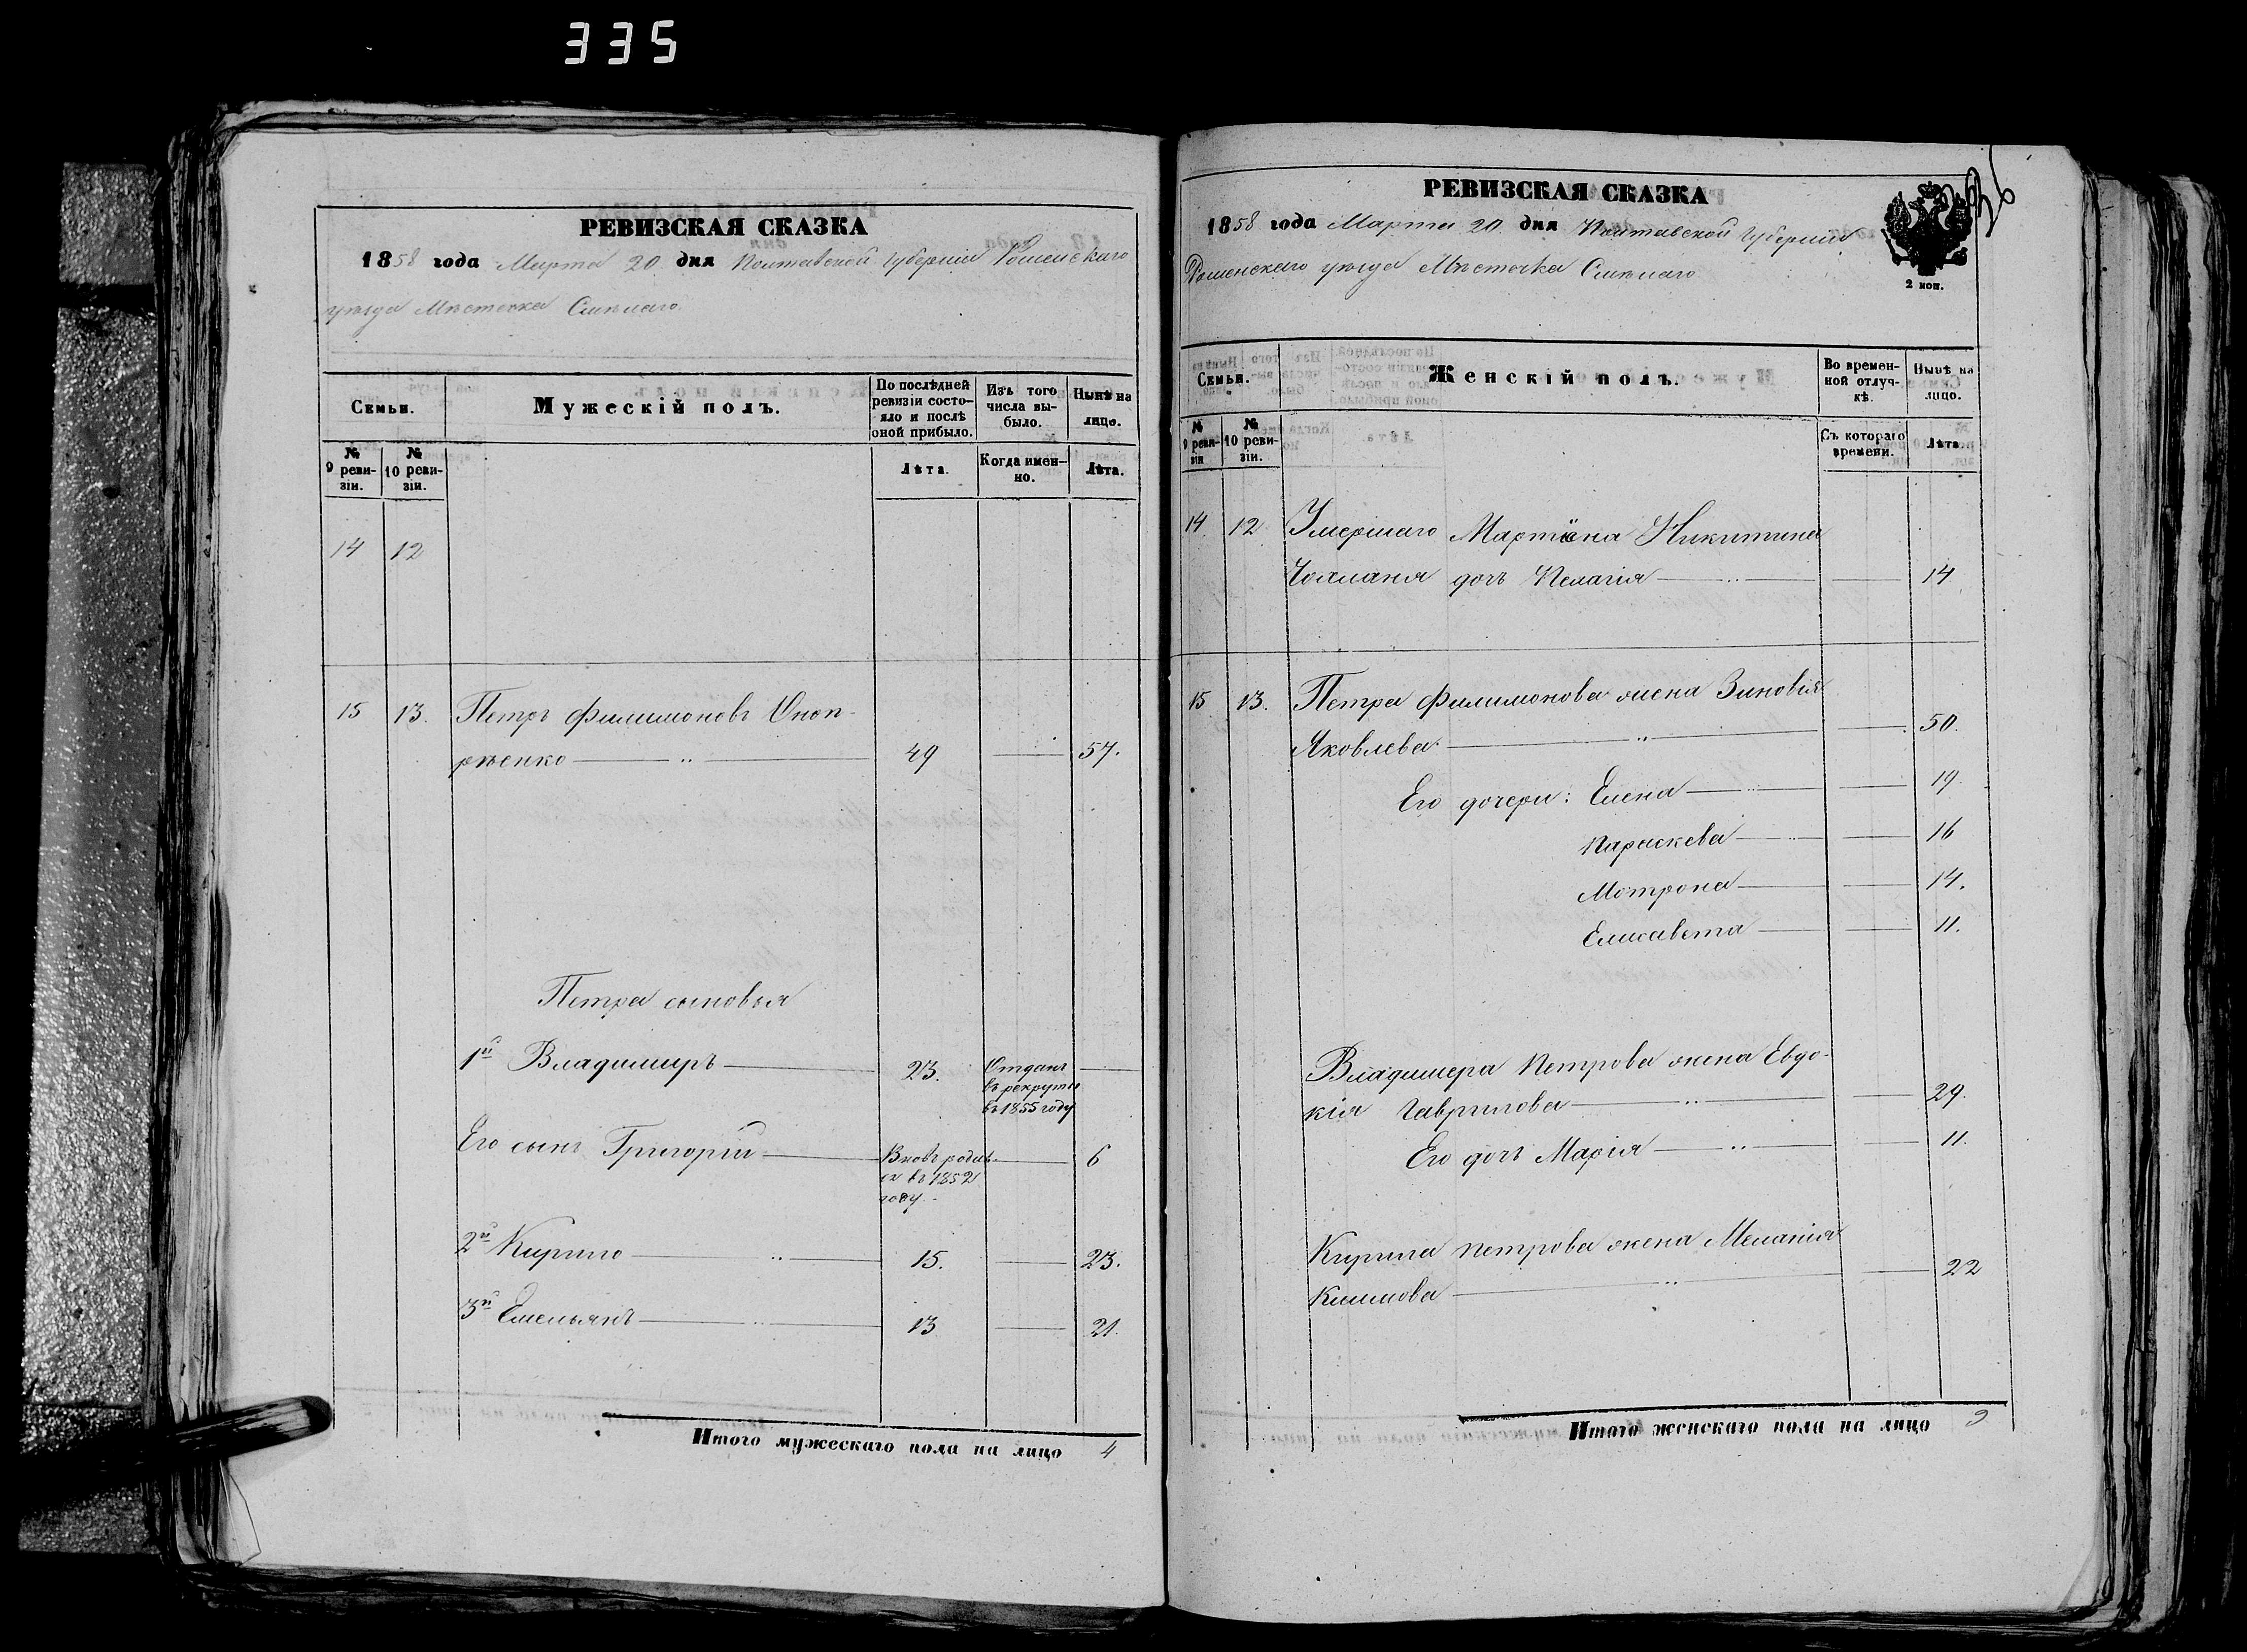 335
РЕВИЗСКАЯ СКАЗКА
1858 года Марта 20 дня Полтавской Губерніи Роменскаго
уезда Местечка Смелаго
Семьи.
Мужескій полъ.
По послѣдней ревизіи состояло и послѣ оной прибыло.
Изъ того числа выбыло.
Нынѣ на лицо.
№ 9 ревизіи.
№ 10 ревизіи.
Лѣта.
Когда именно.
Лѣта.
14 12
15 13. Петръ Филимоновъ Оноп-
рѣенко 49 57.
Петра сыновья
1й Владимиръ 23. Отданъ
въ рекруты
въ 1855 году
Его сынъ Григорій Вновь родил- 6
ся въ 1852
году.
2й Кирило 15. 23.
3й Емельянъ 13 21.
Итого мужескаго пола на лицо 4
РЕВИЗСКАЯ СКАЗКА
1858 года Марта 20 дня Полтавской Губерніи
Роменскаго уезда Местечка Смелаго
2 коп.
Семьи.
Женскій полъ.
Во временной отлучкѣ.
Нынѣ на лицо.
№ 9 ревизіи
№ 10 ревизіи.
Съ котораго времени.
Лѣта.
14 12 Умершаго Мартына Никитина
дочь Пелагія 14
15 13. Петра Филимонова жена Зиновія
Яковлева 50.
Его дочери: Елена 19.
Параскева 16
Мотрона 14.
Елисавета 11.
Владимера Петрова жена Евдо-
кія Гаврилова 29.
Его дочь Марія 11.
Кирила Петрова жена Меланія
Климова 22
Итого женскаго пола на лицо 9